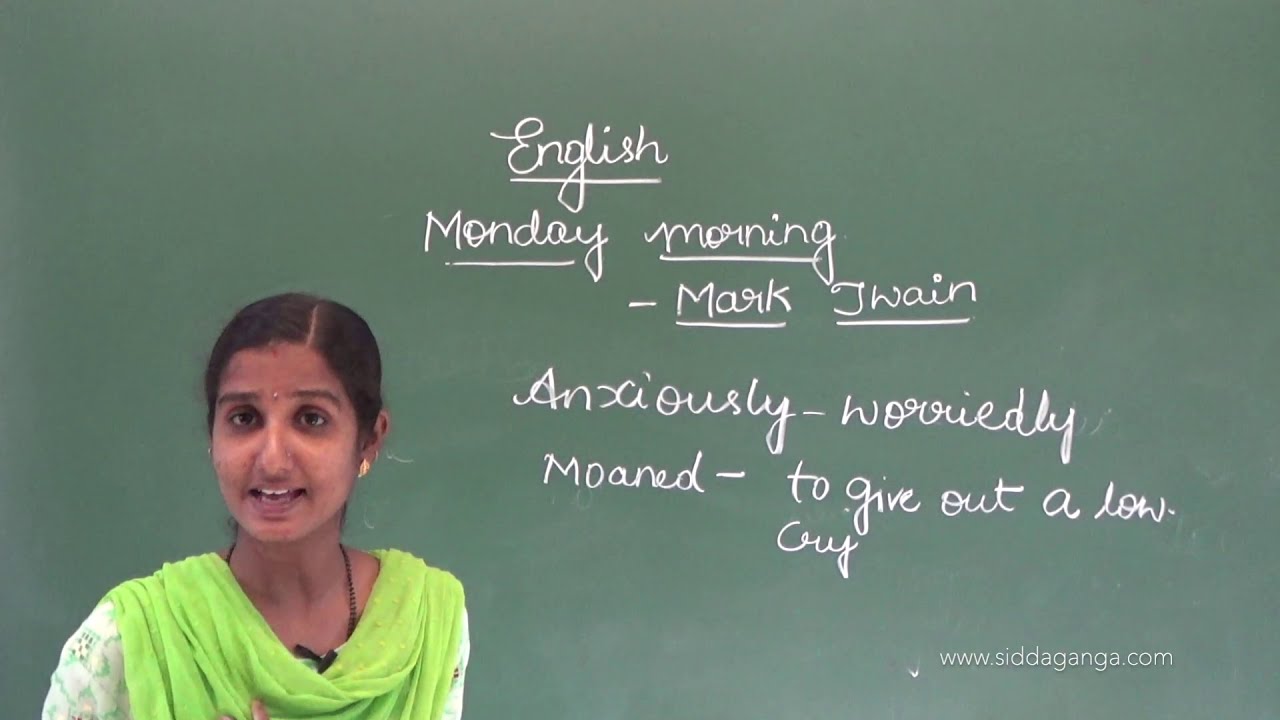 English
Monday morning
- Mark Twain
Anxiously - worriedly
Moaned - to give out a low.
Cry
www.siddaganga.com